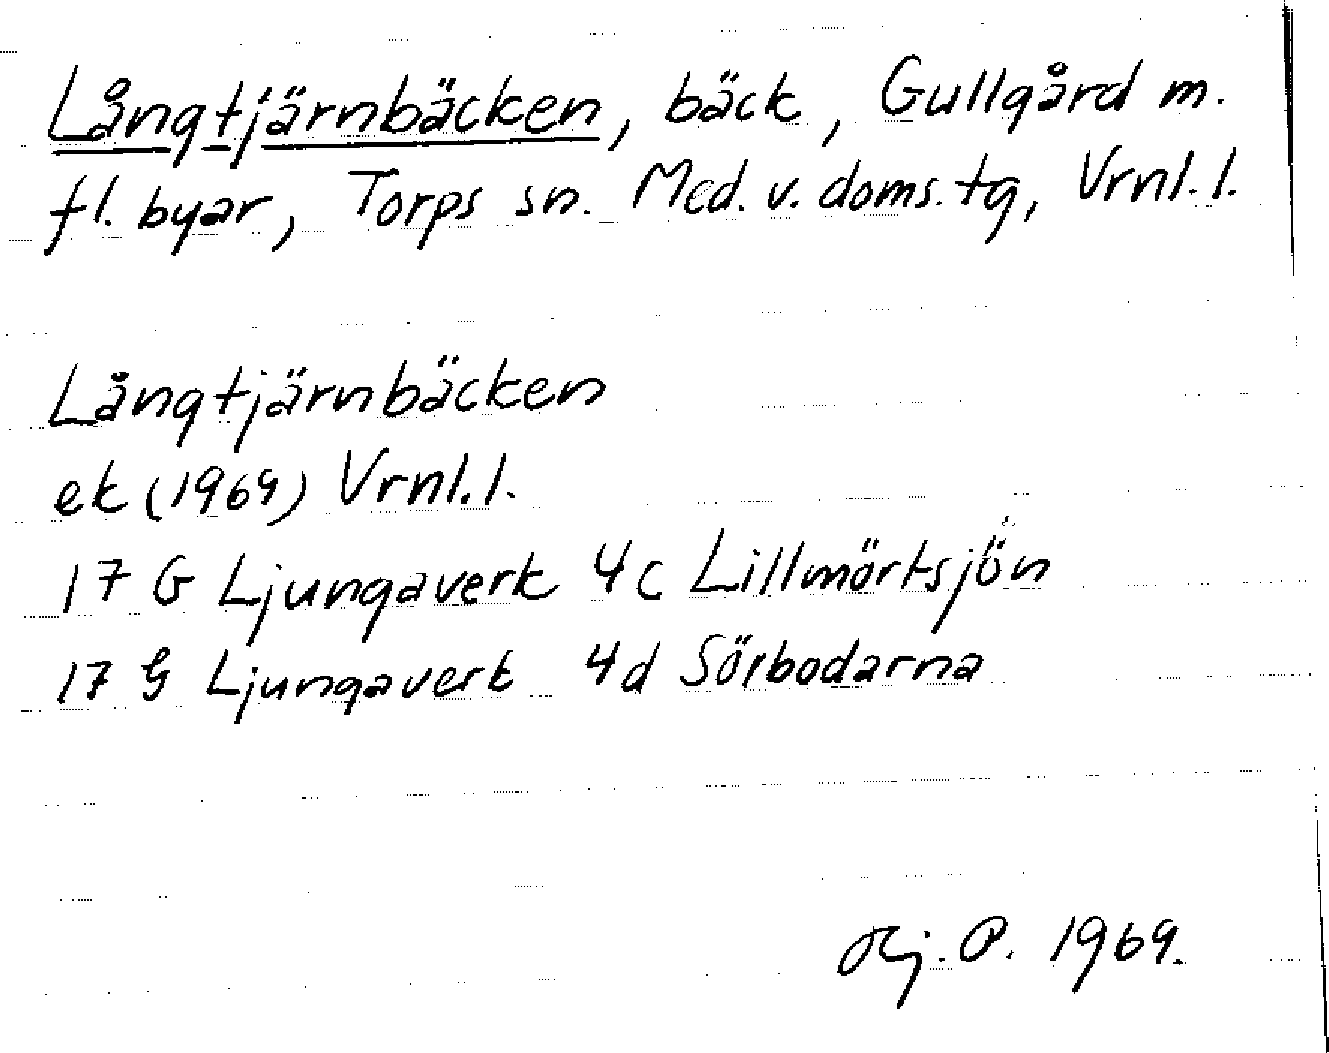 Långtjärnbäcken, bäck, Gullgård m.
fl. byar, Torps sn. Med. v. doms. tg, Vrnl. l.
Långtjärnbäcken
ek (1969) Vrnl. l.
17 G Ljungaverk 4c Lillmörtsjön
17 G Ljungaverk 4d Sörbodarna
Kj. P. 1969.